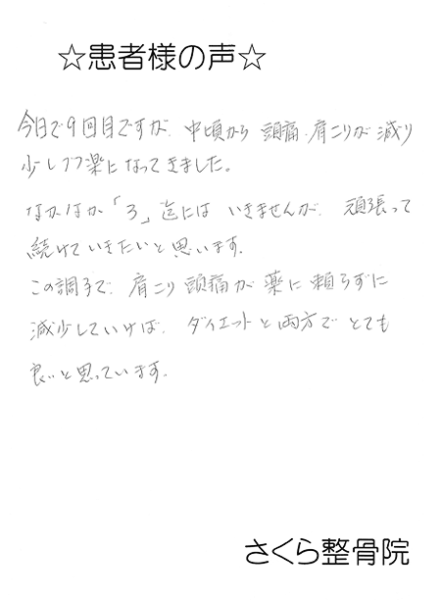 ☆患者様の声☆
今日で9回目ですが、中頃から 頭痛、肩こりが減り
少しづつ楽になってきました。
なかなか「3」迄には いきませんが、頑張って
続けていきたいと思います。
この調子で、肩こり 頭痛が 薬に 頼らずに
減少していけば、ダイエットと両方で とても
良いと思っています。
さくら整骨院